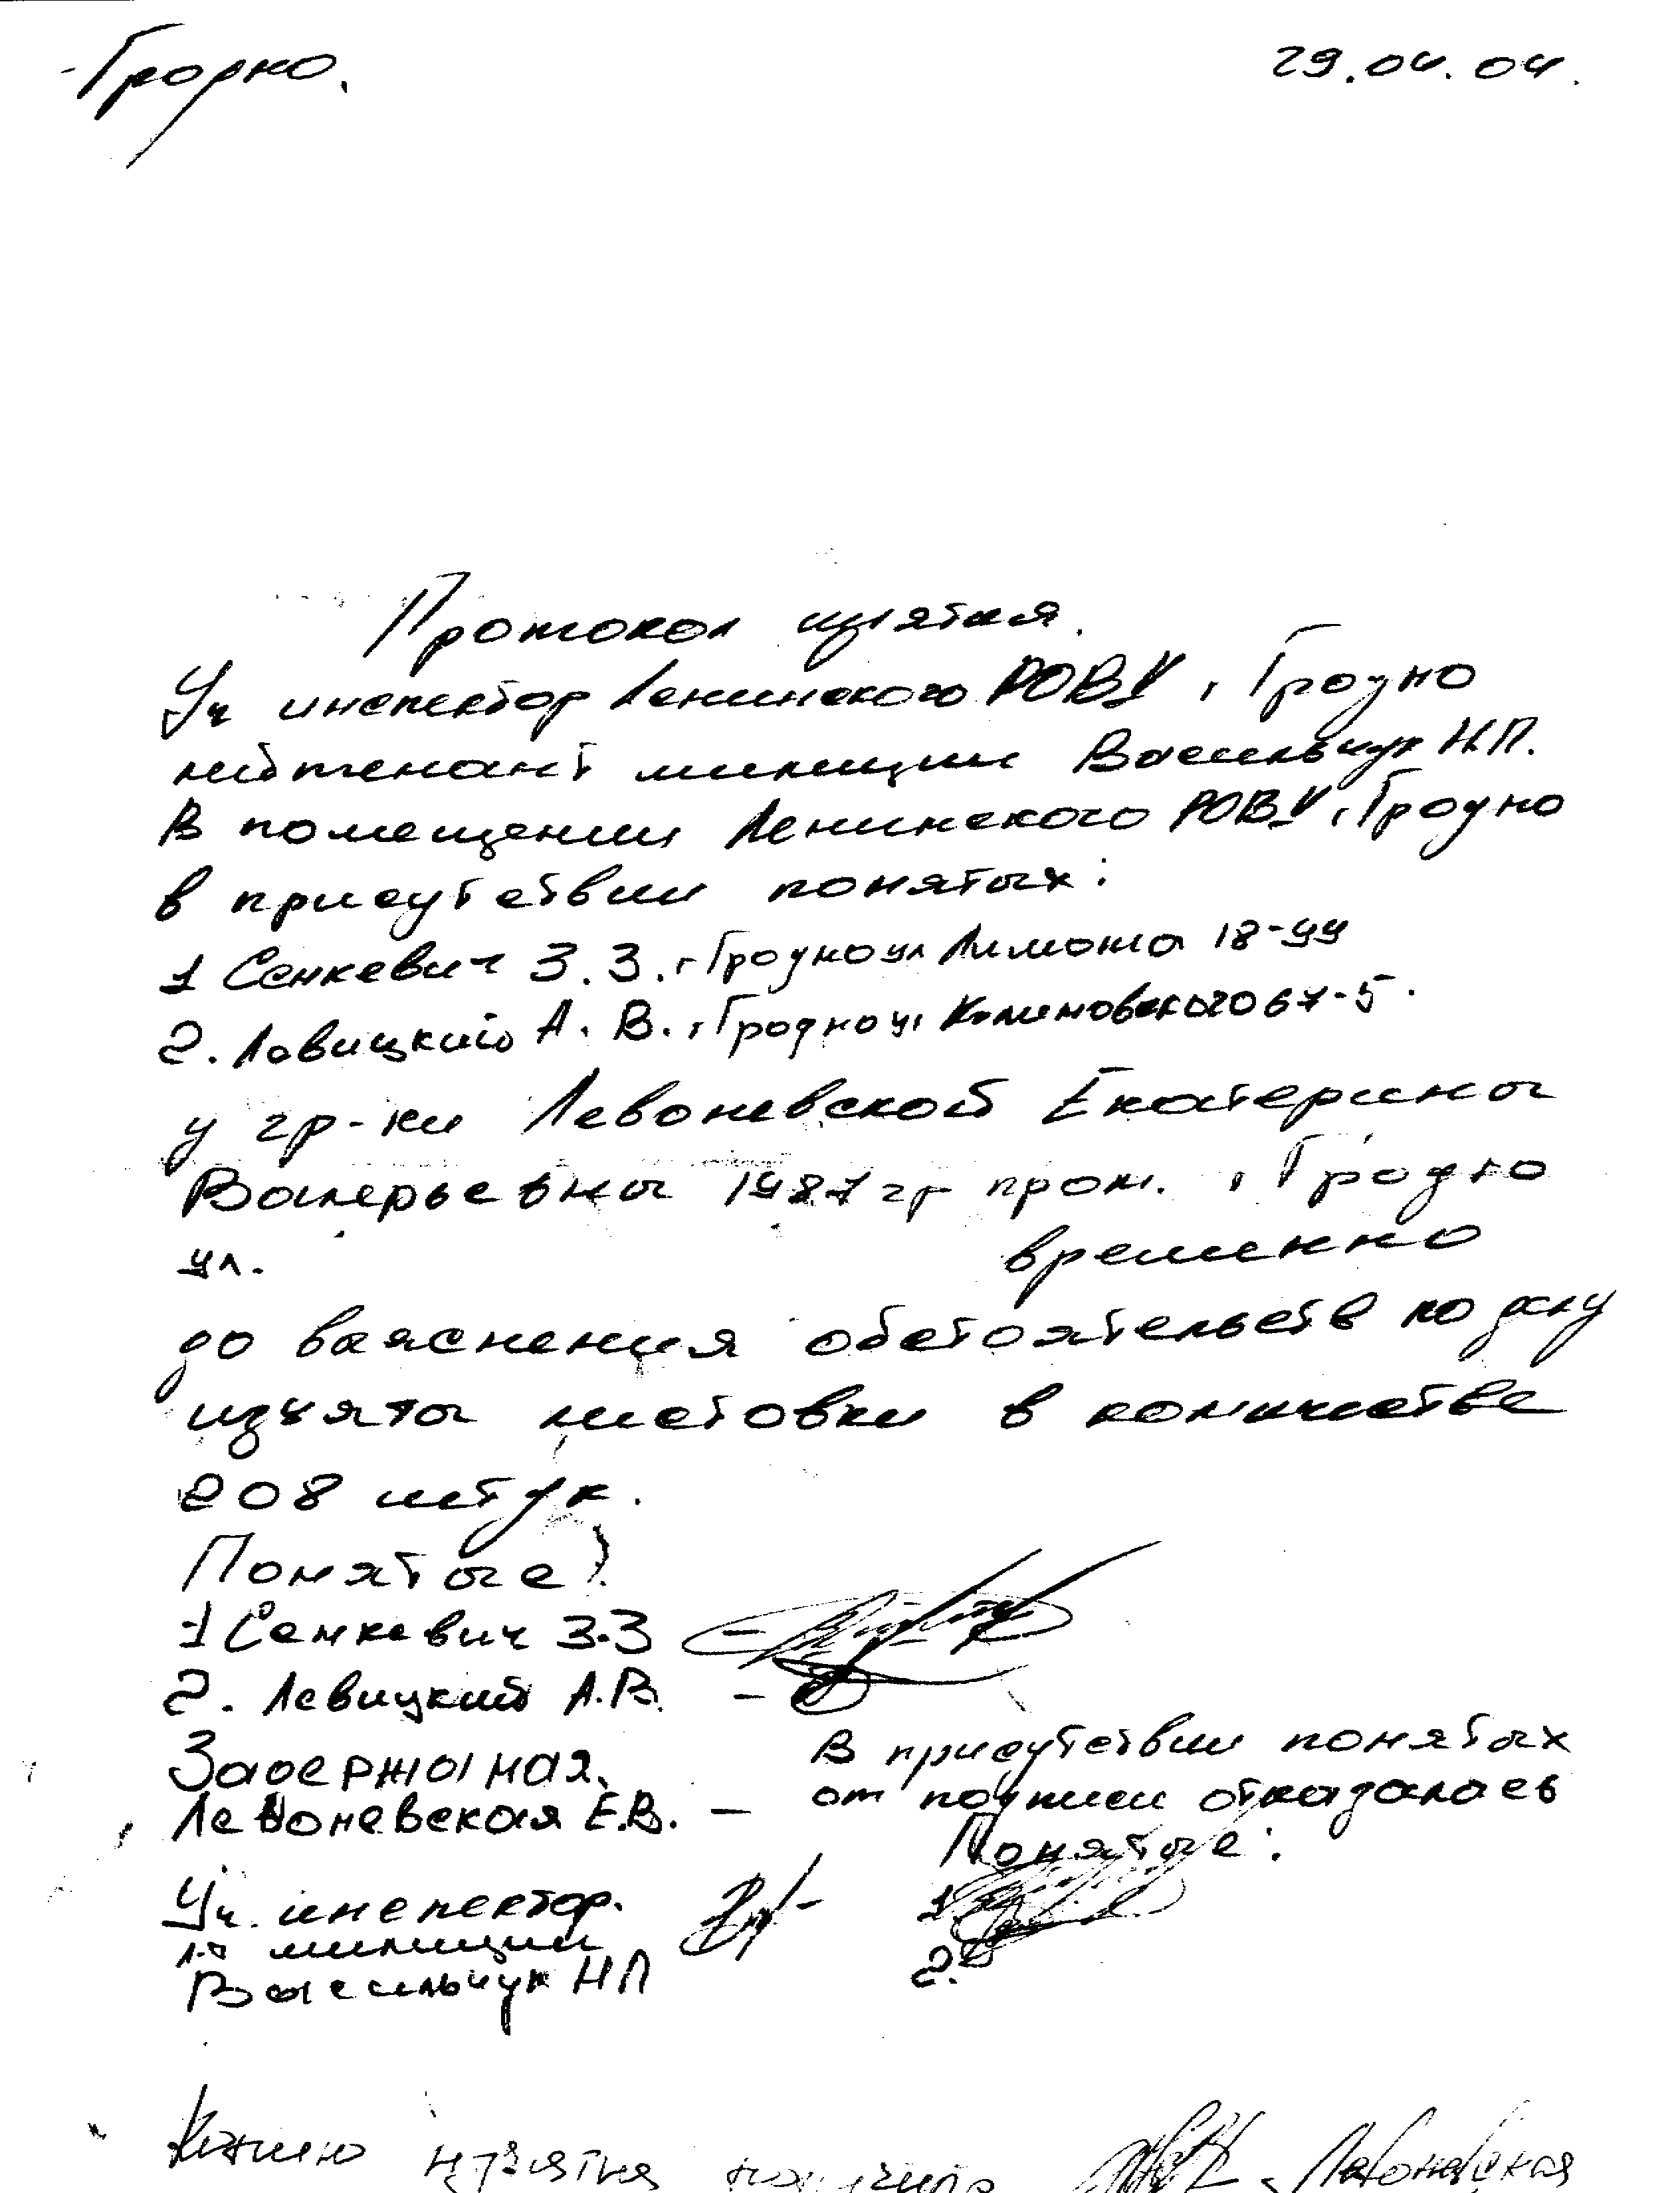 г. Гродно. 29.04.04.
Протокол изъятия.
Уч инспектор Ленинского РОВД г. Гродно
лейтенант милиции Васильчук Н.П.
В помещении Ленинского РОВД г. Гродно
в присутствии понятых:
1 Сенкевич З.З. г Гродно ул Лиможа 18-99
2. Левицкий А. В. г Гродно ул Калиновского 67-5.
у гр-ки Левоневской Екатерины
Валерьевны 1987 гр прож. г Гродно
ул. временно
до выяснения обстоятельств по делу
изъяты листовки в количестве
208 штук.
Понятые:
1 Сенкевич З.З
2. Левицкий А.В. -
Задержаная. В присутствии понятых
Левоневская Е.В. - от подписи отказалась
Понятые:
Уч. инспектор. 1.
л-т милиции
Васильчук НП 2.
Копию изъятия получила Левоневская